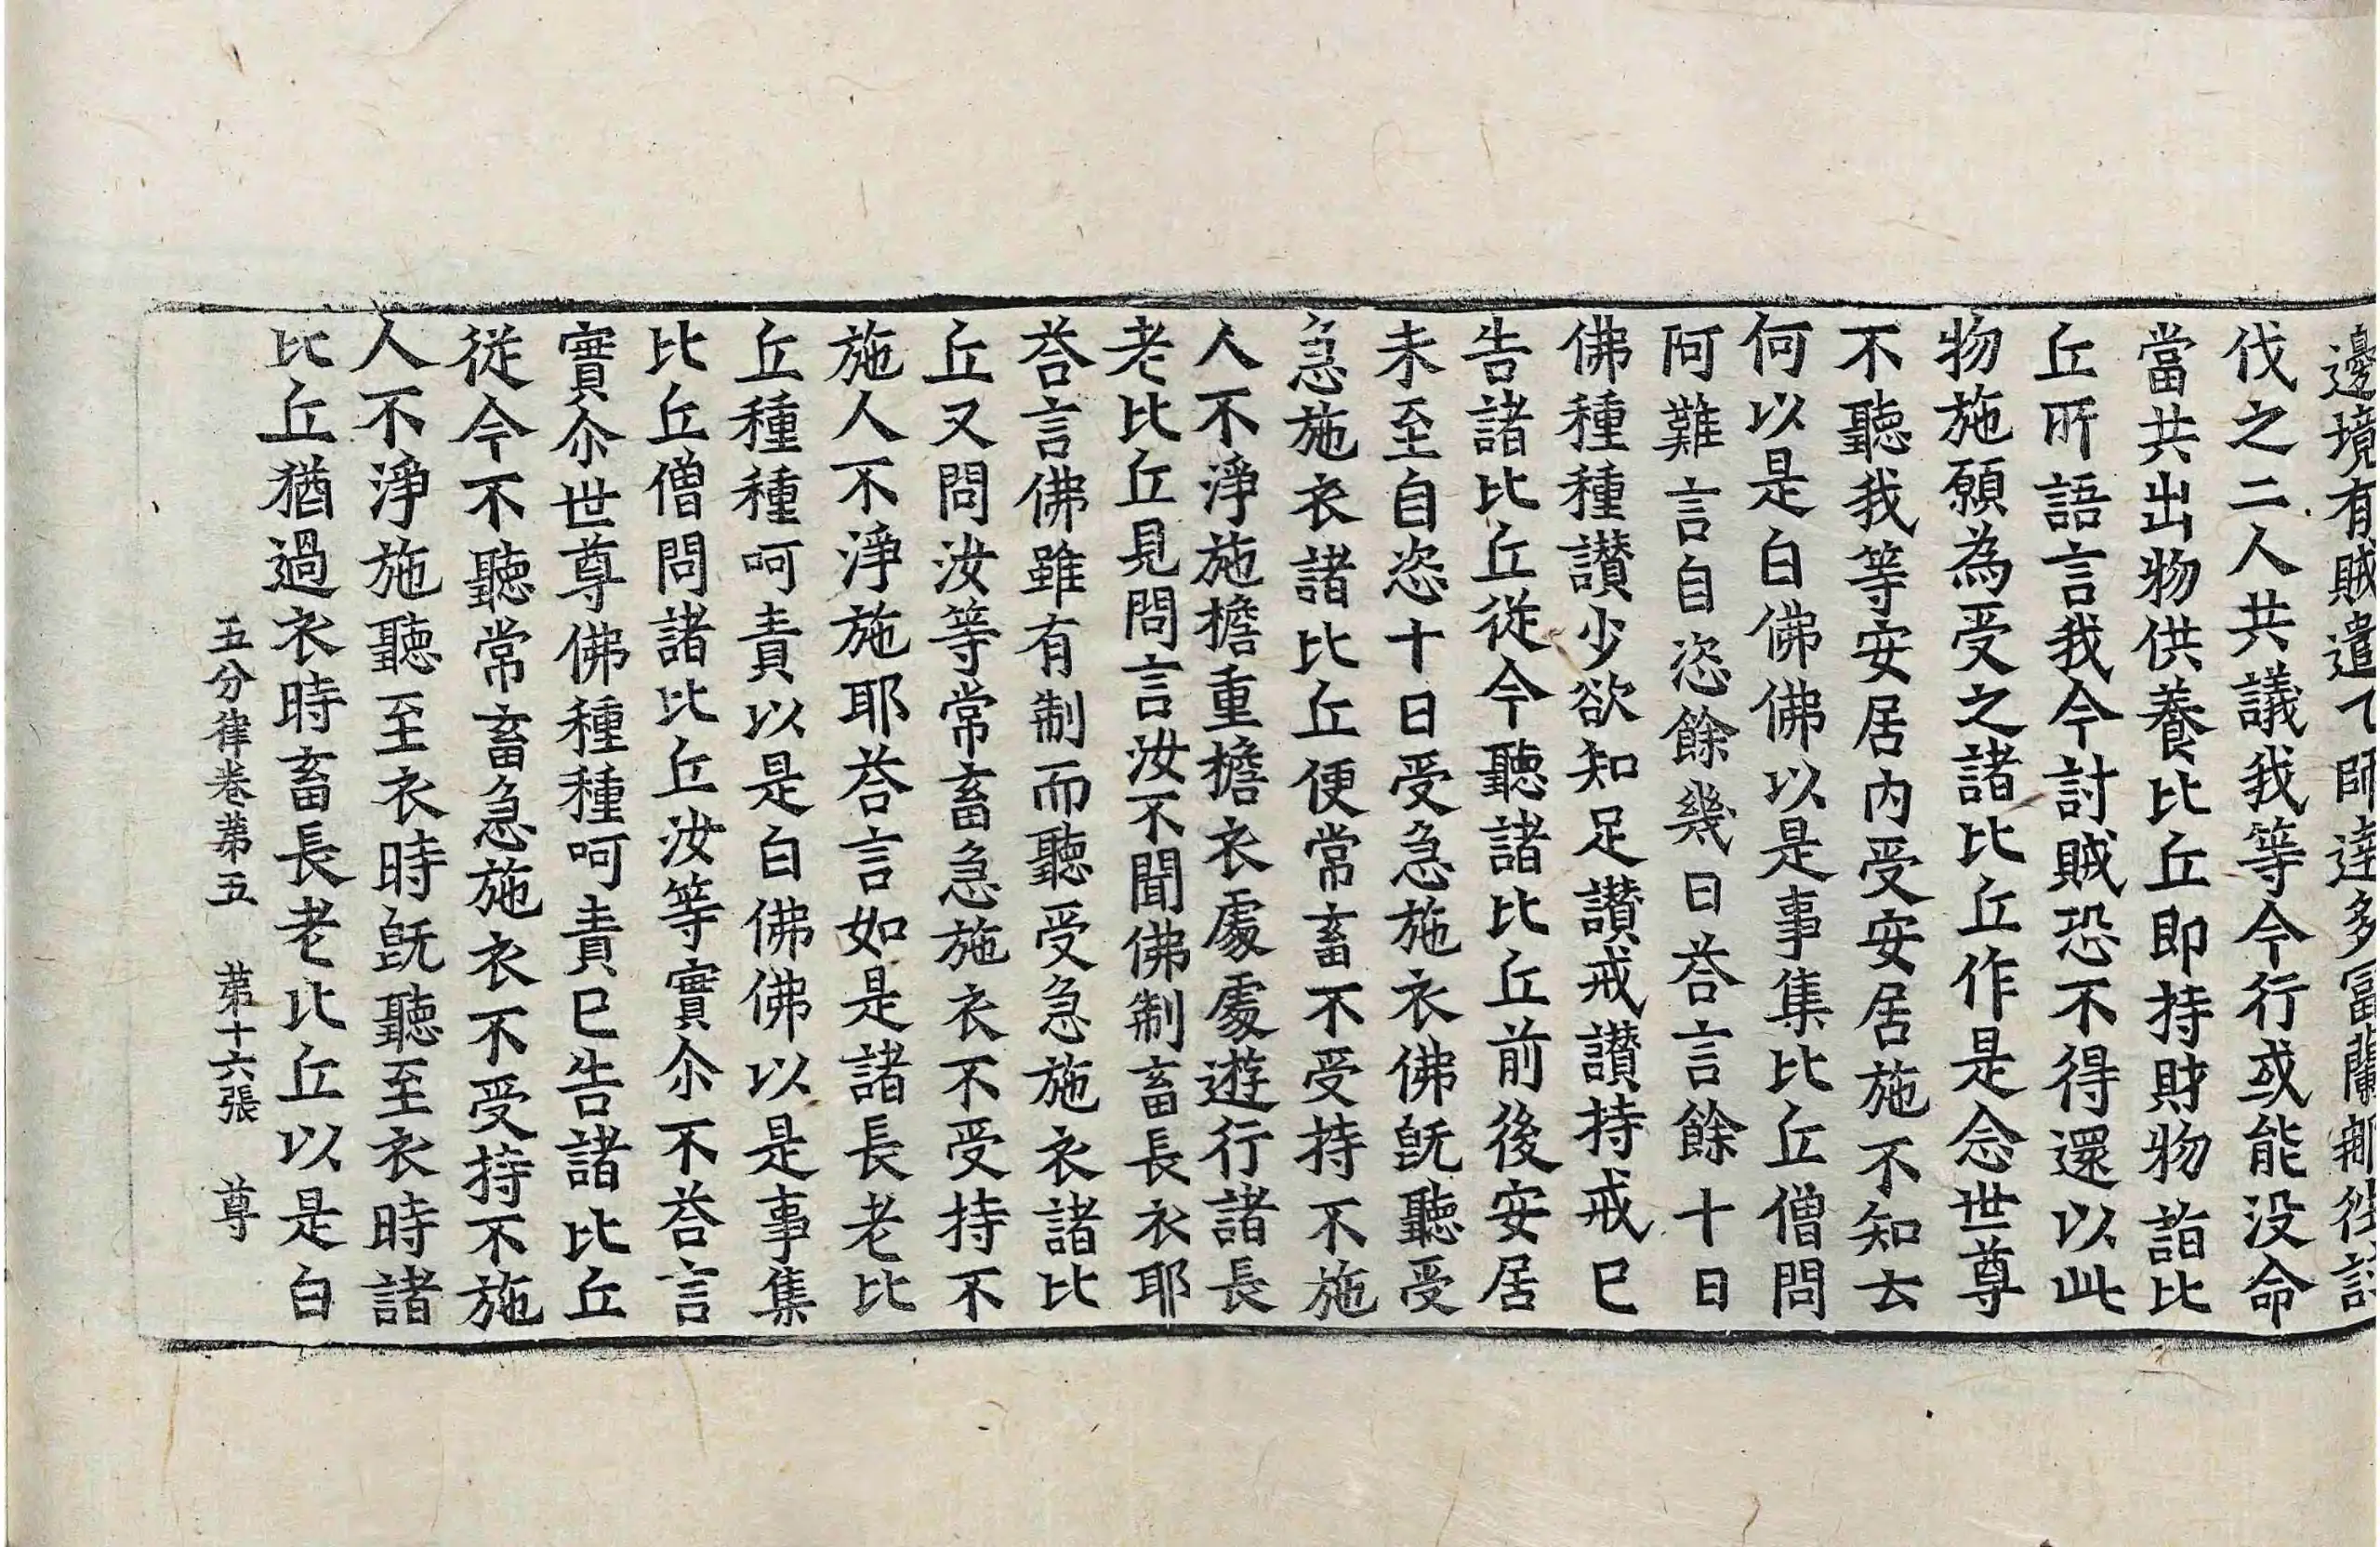 邊境有賊遣大師達多富蘭那往討
伐之二人共議我等今行或能没命
當共出物供養比丘即持財物詣比
丘所語言我今討賊恐不得還以此
物施願為受之諸比丘作是念世尊
不聽我等安居内受安居施不知云
何以是白佛佛以是事集比丘僧問
阿難言自恣餘幾日荅言餘十日
佛種種讃少欲知足讃戒讃持戒已
告諸比丘従今聽諸比丘前後安居
未至自恣十日受急施衣佛旣聽受
急施衣諸比丘便常畜不受持不施
人不淨施擔重擔衣處處遊行諸長
老比丘見問言汝不聞佛制畜長衣耶
荅言佛雖有制而聽受急施衣諸比
丘又問汝等常畜急施衣不受持不
施人不淨施耶荅言如是諸長老比
丘種種呵責以是白佛佛以是事集
比丘僧問諸比丘汝等實尒不荅言
實尒世尊佛種種呵責已告諸比丘
従今不聽常畜急施衣不受持不施
人不淨施聽至衣時旣聽至衣時諸
比丘猶過衣時畜長老比丘以是白
五分律卷苐五 苐十六張 尊